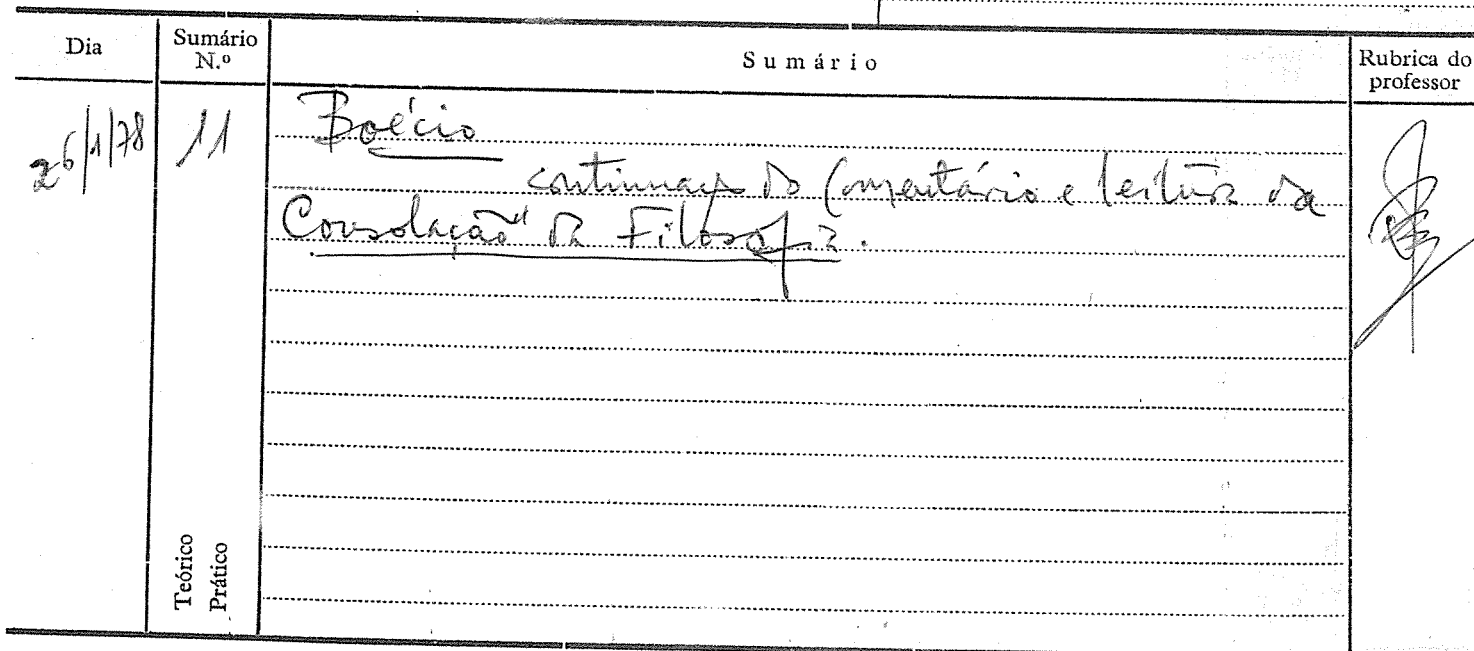 Dia Sumário N.º Sumário Rubrica do professor
26/1/78 11 Boécio
continuação do Comentário e leitura da
Consolação da Filosofia.
Teórico
Prático